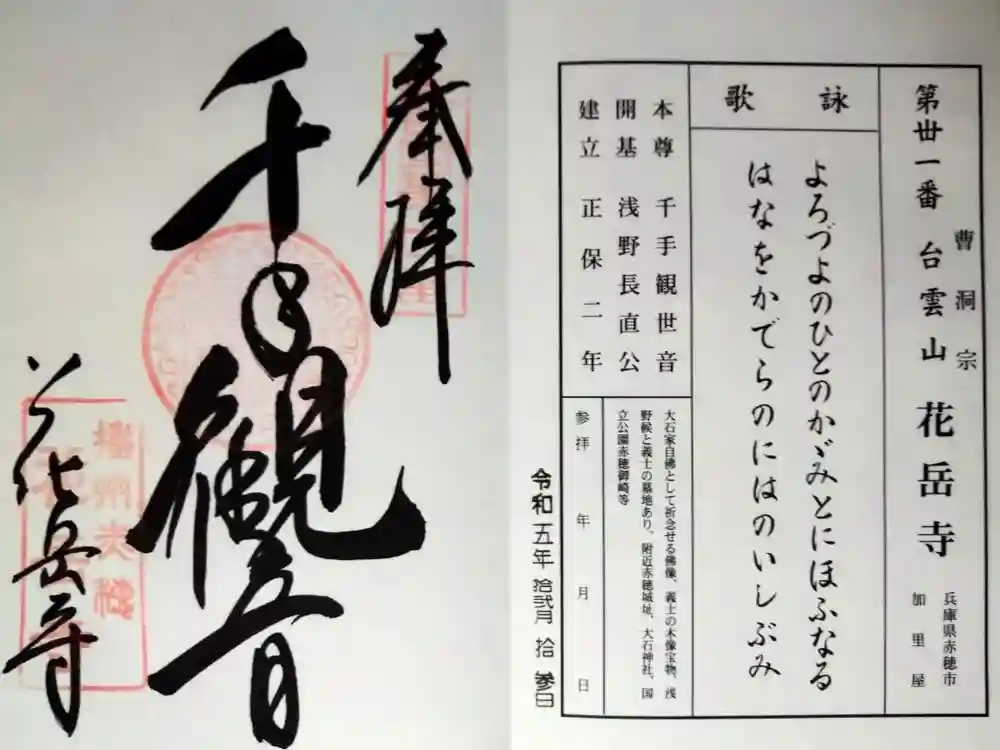 第丗一番 台雲山 花岳寺
曹洞宗
兵庫県赤穂市
加里屋
詠歌
よろづよのひとのかゞみとにほふなる
はなをかでらのにはのいしぶみ
本尊 千手観世音
開基 浅野長直公
建立 正保二年
大石家自佛として祈念せる佛像、義士の木像宝物、浅
野候と義士の墓地あり、附近赤穂城址、大石神社、国
立公園赤穂御崎等
参拝 年 月 日
令和五年 拾弐月 拾参日
奉拝
千手観音
花岳寺
播州赤穂